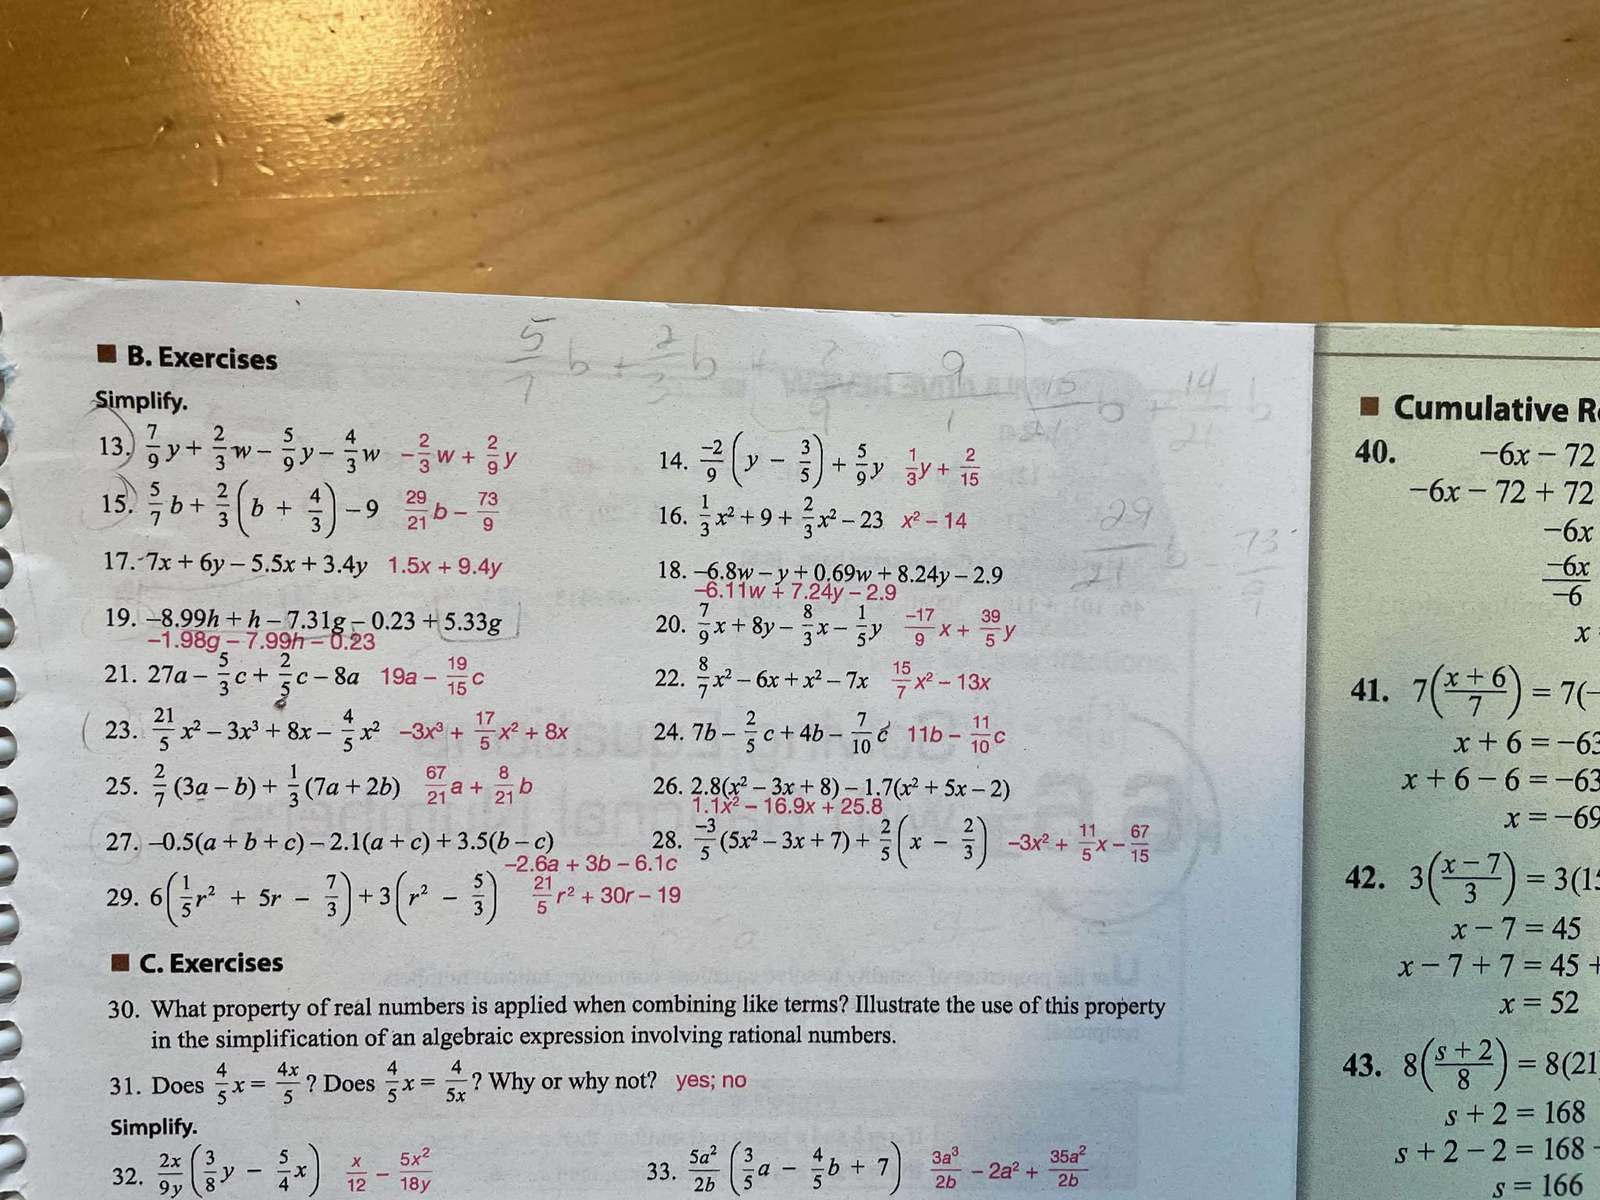 5/7 b + 2/3 b + 9/1
14/21 b
29/21 b 73
B. Exercises
Simplify.
13. 7/9 y + 2/3 w – 5/9 y – 4/3 w –2/3 w + 2/9 y
14. –2/9 (y – 3/5) + 5/9 y 1/3 y + 2/15
15. 5/7 b + 2/3 (b + 4/3) – 9 29/21 b – 73/9
16. 1/3 x² + 9 + 2/3 x² – 23 x² – 14
17. 7x + 6y – 5.5x + 3.4y 1.5x + 9.4y
18. –6.8w – y + 0.69w + 8.24y – 2.9
–6.11w + 7.24y – 2.9
19. –8.99h + h – 7.31g – 0.23 + 5.33g
–1.98g – 7.99h – 0.23
20. 7/9 x + 8y – 8/3 x – 1/5 y –17/9 x + 39/5 y
21. 27a – 5/3 c + 2/5 c – 8a 19a – 19/15 c
22. 8/7 x² – 6x + x² – 7x 15/7 x² – 13x
23. 21/5 x² – 3x³ + 8x – 4/5 x² –3x³ + 17/5 x² + 8x
24. 7b – 2/5 c + 4b – 7/10 c 11b – 11/10 c
25. 2/7 (3a – b) + 1/3 (7a + 2b) 67/21 a + 8/21 b
26. 2.8(x² – 3x + 8) – 1.7(x² + 5x – 2)
1.1x² – 16.9x + 25.8
27. –0.5(a + b + c) – 2.1(a + c) + 3.5(b – c)
–2.6a + 3b – 6.1c
28. –3/5 (5x² – 3x + 7) + 2/5 (x – 2/3) –3x² + 11/5 x – 67/15
29. 6(1/5 r² + 5r – 7/3) + 3(r² – 5/3) 21/5 r² + 30r – 19
C. Exercises
30. What property of real numbers is applied when combining like terms? Illustrate the use of this property
in the simplification of an algebraic expression involving rational numbers.
31. Does 4/5 x = 4x/5 ? Does 4/5 x = 4/5x ? Why or why not? yes; no
Simplify.
32. 2x/9y (3/8 y – 5/4 x) x/12 – 5x²/18y
33. 5a²/2b (3/5 a – 4/5 b + 7) 3a³/2b – 2a² + 35a²/2b
Cumulative
40. –6x – 72
–6x – 72 + 72
–6x
–6x/–6
x
41. 7(x + 6/7) = 7(–
x + 6 = –63
x + 6 – 6 = –63
x = –69
42. 3(x – 7/3) = 3(15
x – 7 = 45
x – 7 + 7 = 45 +
x = 52
43. 8(s + 2/8) = 8(21
s + 2 = 168
s + 2 – 2 = 168 –
s = 166